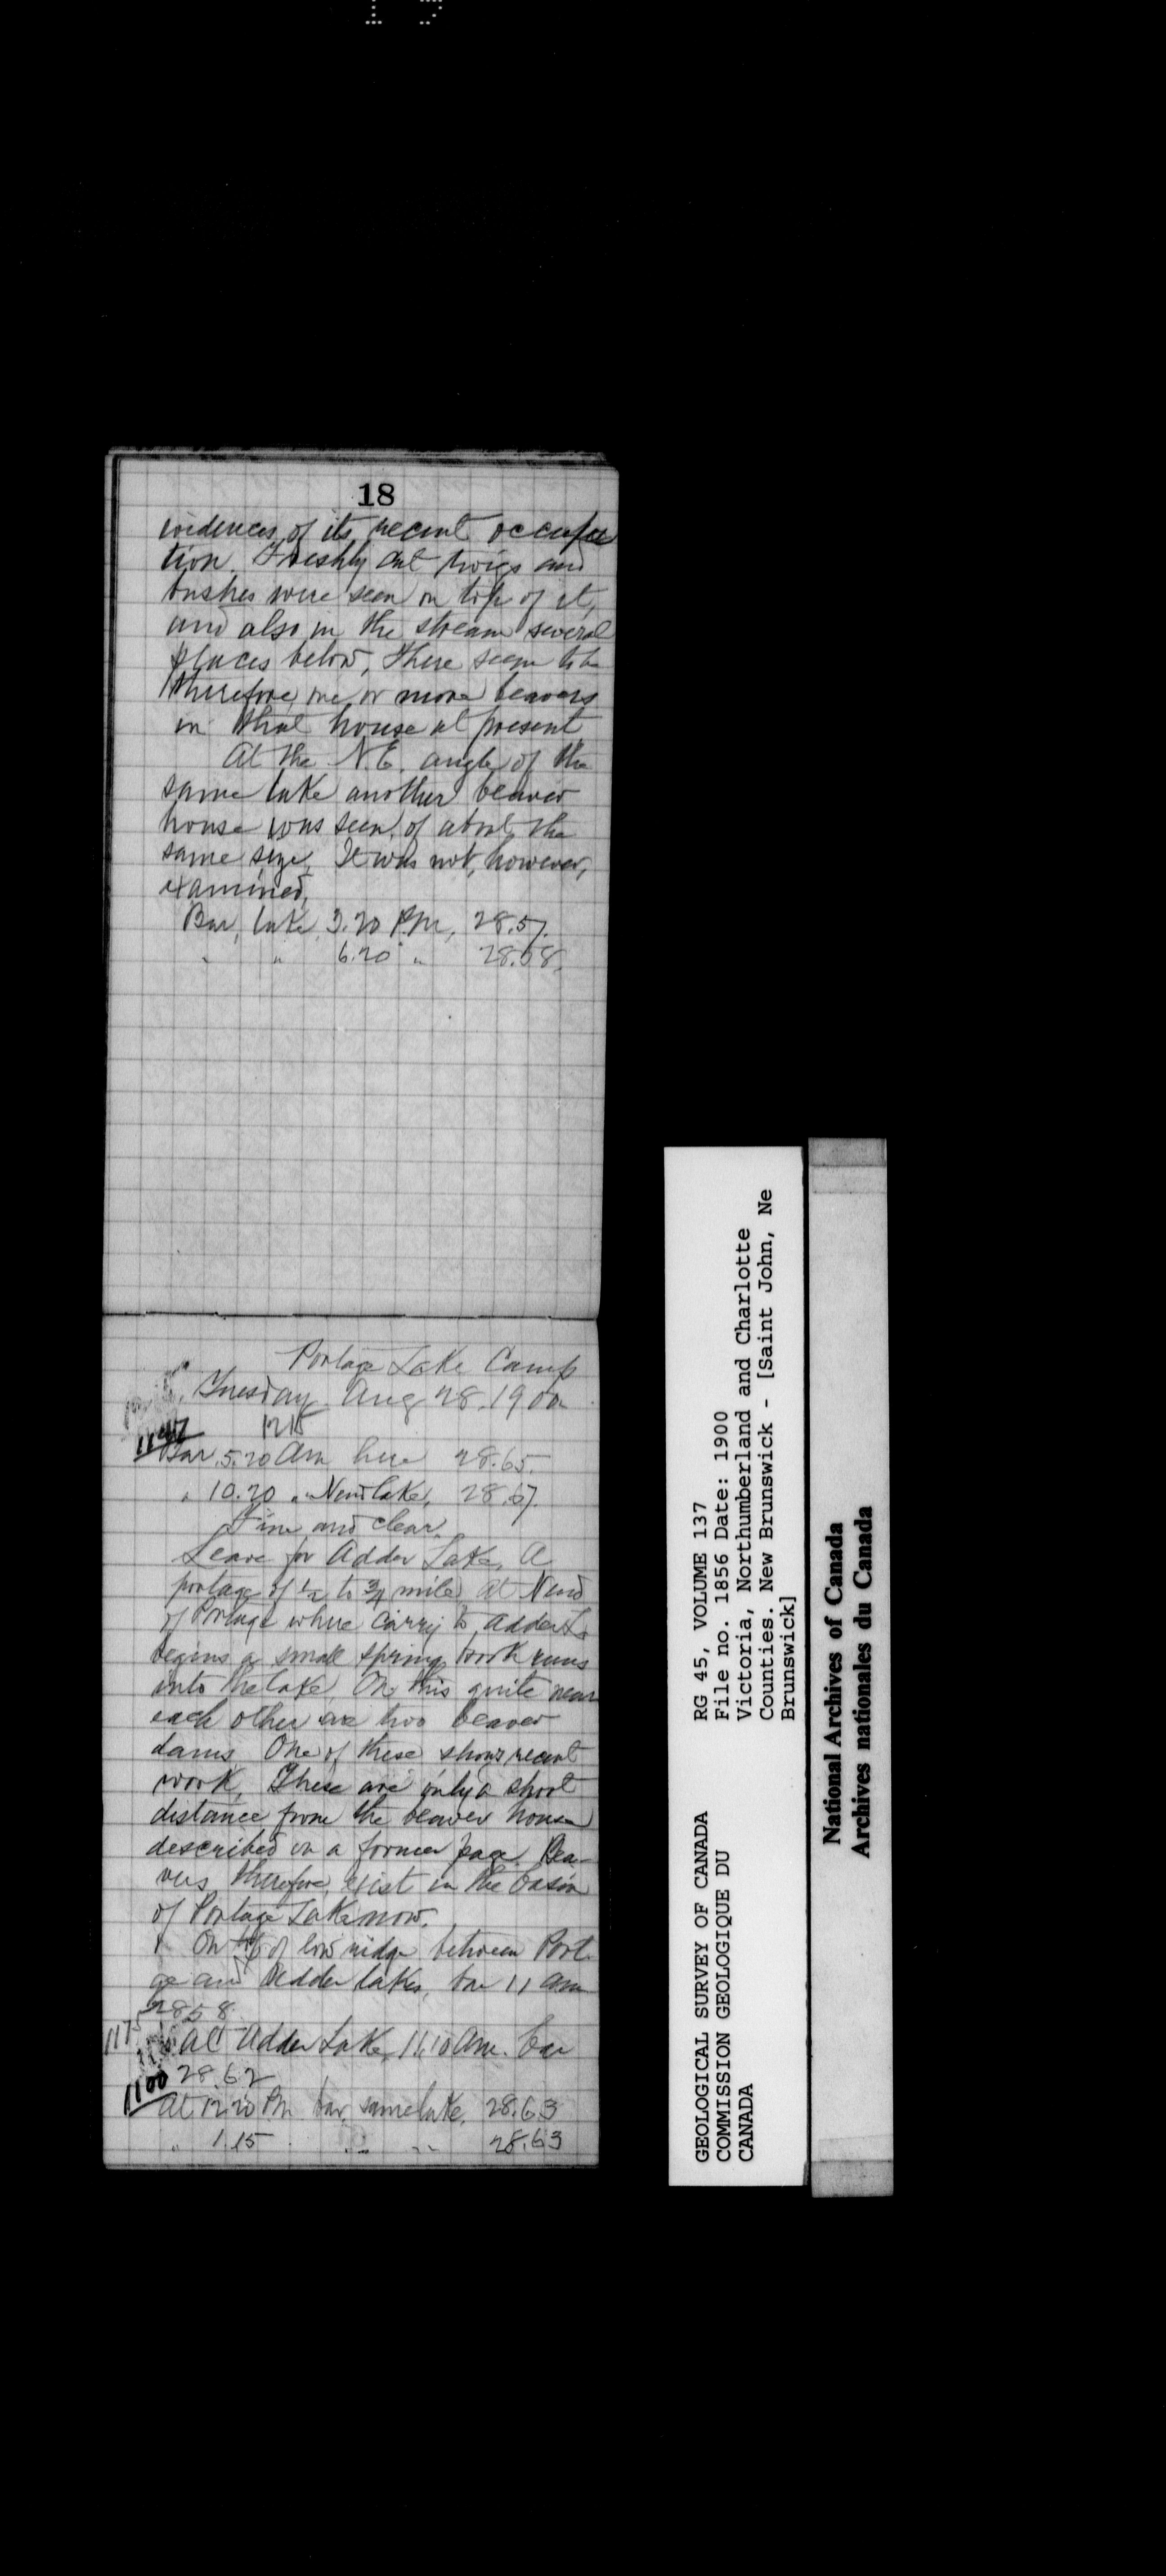 18
evidences of its recent occupa
tion. Freshly cut twigs and
bushes were seen on top of it,
and also in the stream several
places below, there seem to be
therefore, one or more beavers
in that house at present
At the N.E. angle of the
same lake another beaver
house was seen, of about the
same size. It was not, however,
examined,
Bar, lake, 3.20 P.M, 28.57.
" " 6.20 " 28.58.
Portage Lake Camp
Tuesday Aug 28. 1900
1215
1147
Bar. 5.20 Am here 28.65.
" 10.20 " N end lake, 28.67.
Fine and clear.
Leave for Adder Lake, A
portage of 1/2 to 3/4 mile, at N end
of Portage where carry to Adder L.
begins a small spring brook runs
into the lake, On this quite near
each other are two beaver
dams One of these shows recent
work, These are only a short
distance from the beaver house
described on a former page. Bea-
vers, therefore, exist in the basin
of Portage Lake now.
On top of low ridge between Port-
age and Adder lakes, bar 11 am
28.58.
1175
At Adder Lake, 11.10 Am. bar
28.62
1100
At 12.20 Pm bar, same lake, 28.63
" 1.15 " " 28.63
RG 45, VOLUME 137
File no. 1856 Date: 1900
Victoria, Northumberland and Charlotte
Counties. New Brunswick - [Saint John, Ne
Brunswick]
GEOLOGICAL SURVEY OF CANADA
COMMISSION GEOLOGIQUE DU
CANADA
National Archives of Canada
Archives nationales du Canada